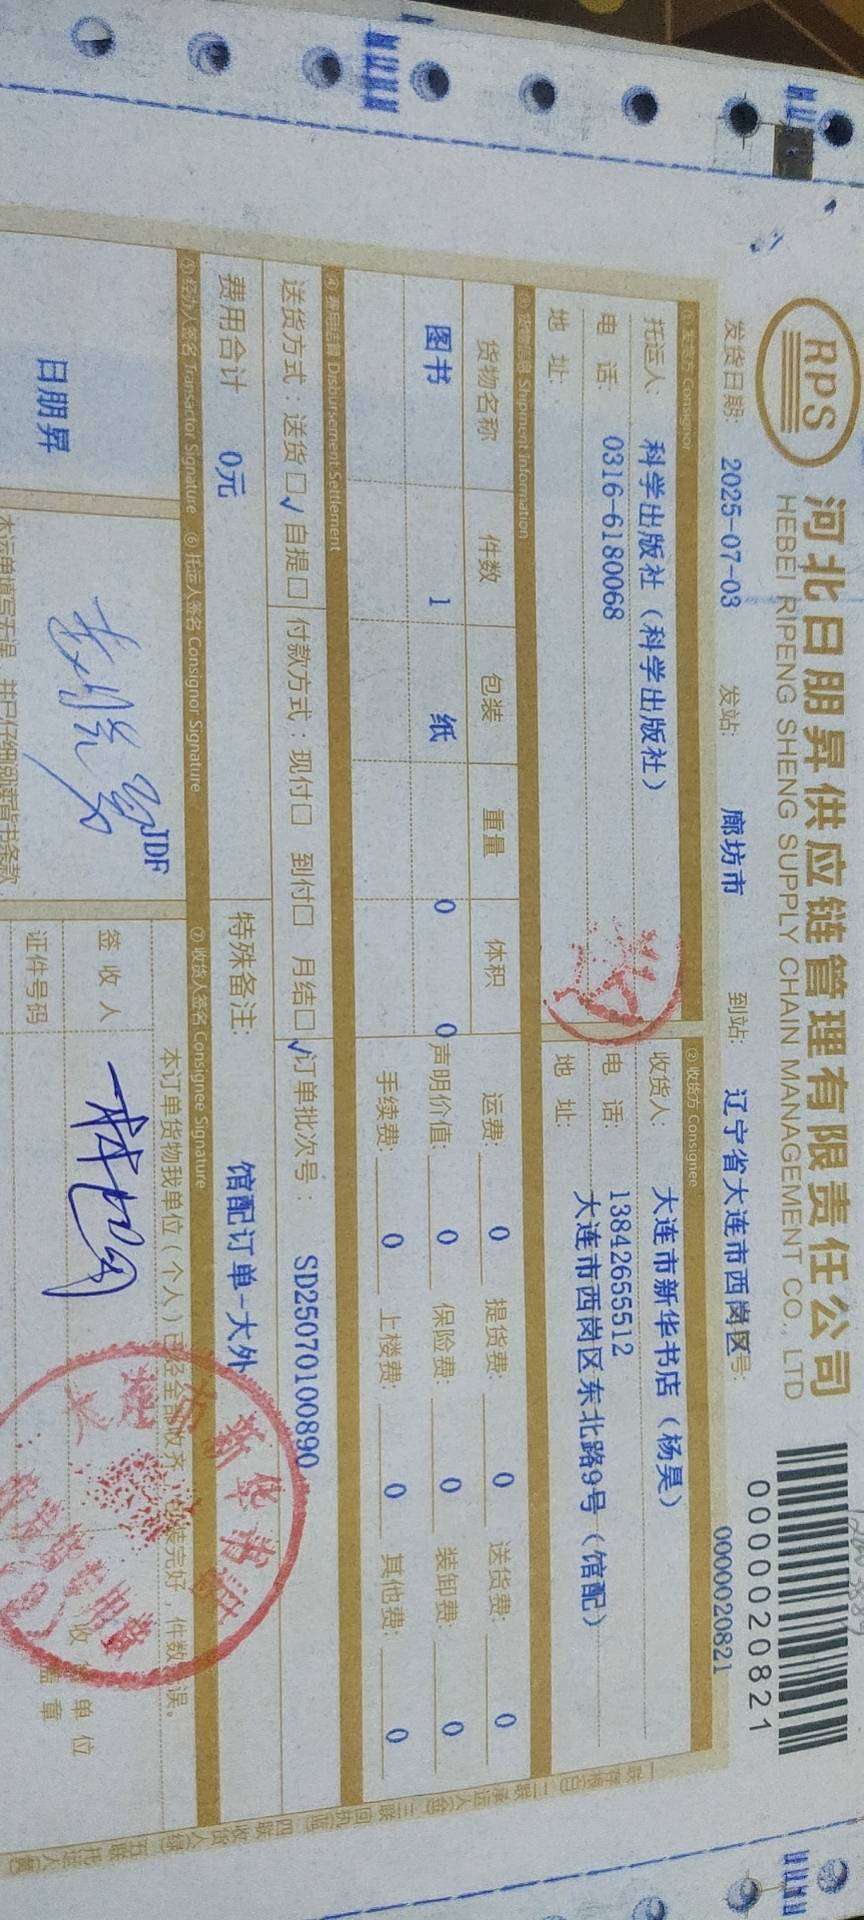 RPS
河北日朋昇供应链管理有限责任公司
HEBEI RIPENG SHENG SUPPLY CHAIN MANAGEMENT CO., LTD
0000020821
发货日期: 2025-07-03 发站: 廊坊市 到站: 辽宁省大连市西岗区 号: 0000020821
① 托运方 Consignor ② 收货方 Consignee
托运人: 科学出版社（科学出版社） 收货人: 大连市新华书店（杨昊）
电 话: 0316-6180068 电 话: 13842655512
地 址: 地 址: 大连市西岗区东北路9号（馆配）
③ 货物信息 Shipment Information
货物名称 件数 包装 重量 体积 运费: 0 提货费: 0 送货费: 0
图书 1 纸 0 0 声明价值: 0 保险费: 0 装卸费: 0
手续费: 0 上楼费: 0 其他费: 0
④ 费用结算 Disbursement Settlement
送货方式：送货□√ 自提□ 付款方式：现付□ 到付□ 月结□√ 订单批次号： SD25070100890
费用合计 0元 特殊备注: 馆配订单-大外
⑤ 经办人签名 Transactor Signature ⑥ 托运人签名 Consignor Signature ⑦ 收货人签名 Consignee Signature
本订单货物我单位（个人）已经全部收齐，包装完好，件数无误。
日朋昇 JDF
签 收 人
收货单位
盖 章
证件号码
本运单填写无误，并已仔细阅读背书条款
大连市新华书店